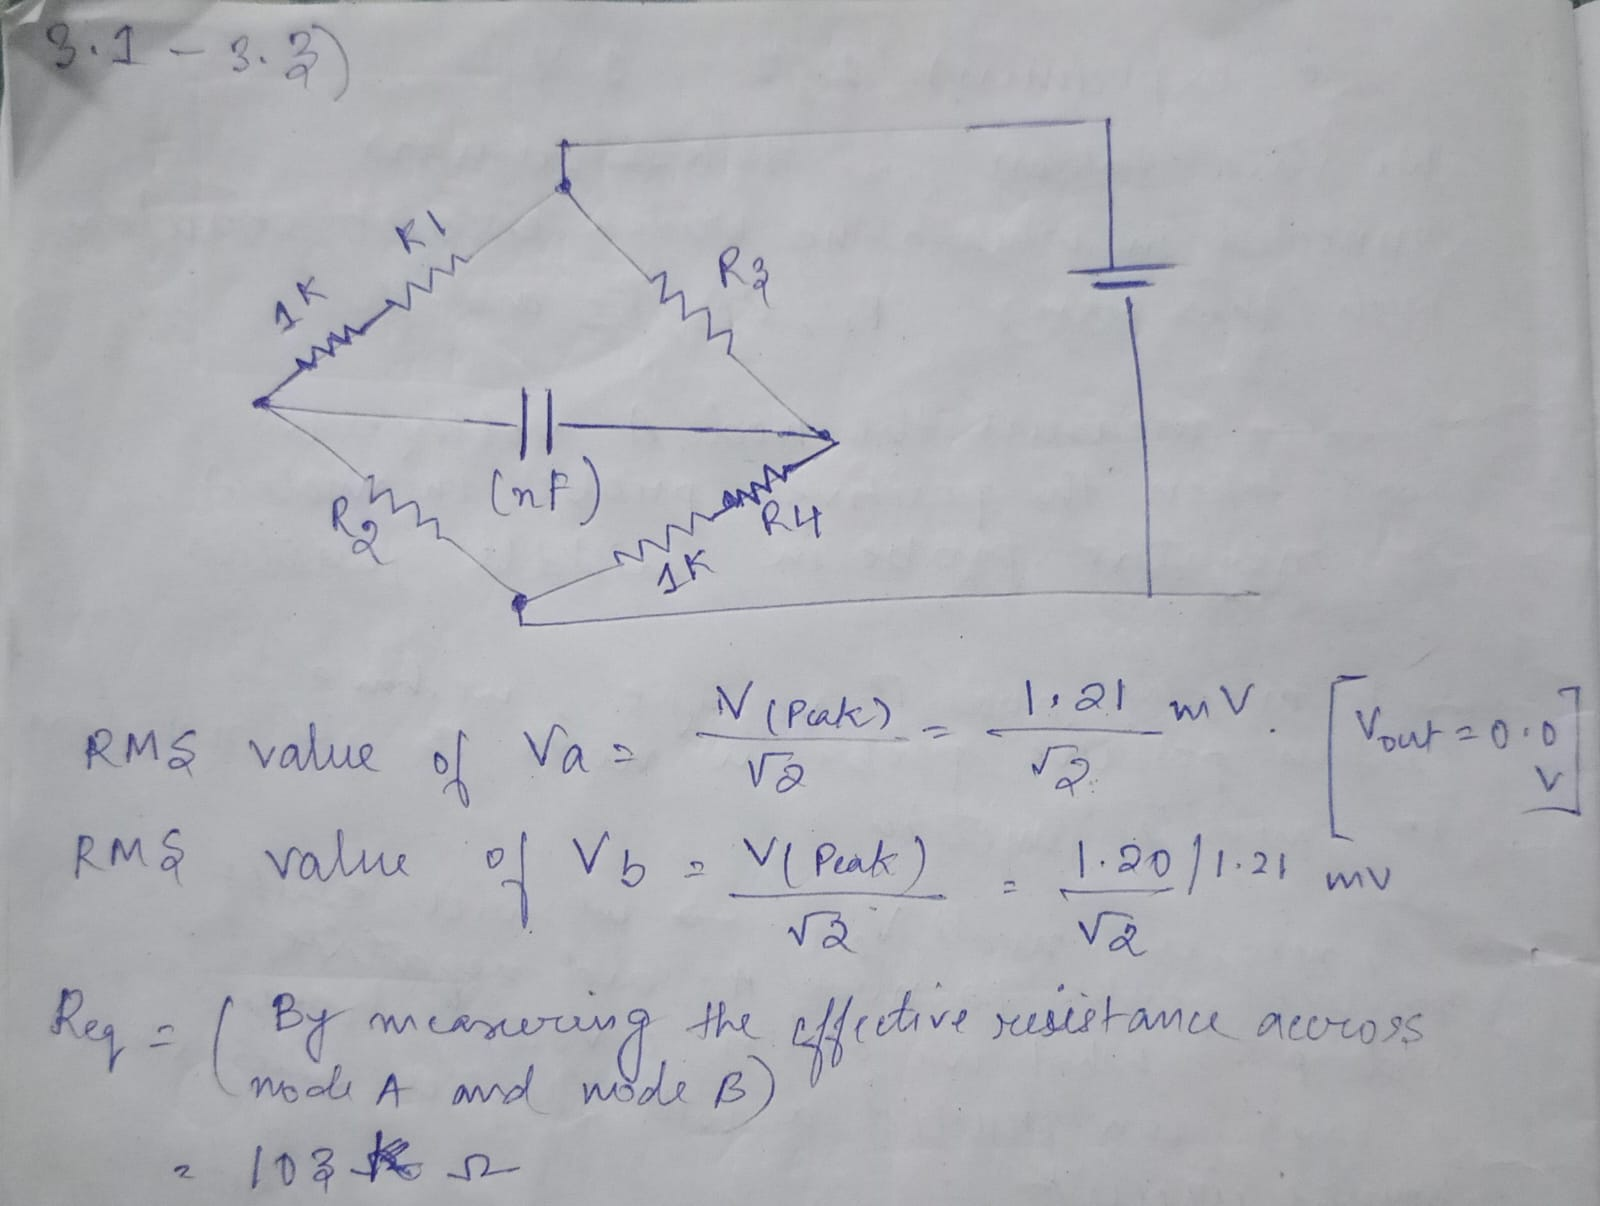 3.1 - 3.3)
R1
1K
R3
(nF)
R2
R4
1K
RMS value of Va = V(Peak)/√2 = 1.21/√2 mV. [Vout = 0.0 V]
RMS value of Vb = V(Peak)/√2 = 1.20/1.21/√2 mV
Req = (By measuring the effective resistance accross
node A and node B)
= 103 Ω